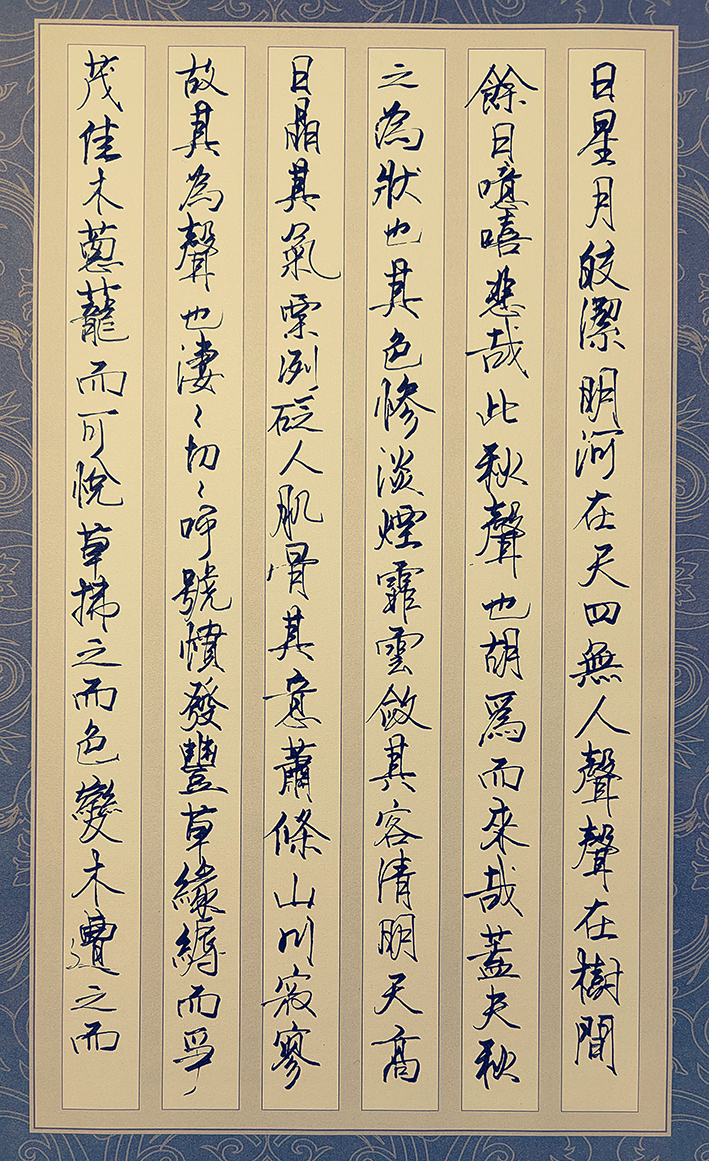 日星月皎潔明河在天四無人聲聲在樹間
餘曰噫嘻悲哉此秋聲也胡爲而來哉蓋夫秋
之為狀也其色慘淡煙霏雲斂其容清明天高
日晶其氣栗冽砭人肌骨其意蕭條山川寂寥
故其為聲也淒〻切〻呼號憤發豐草綠縟而爭
茂佳木蔥蘢而可悅草拂之而色變木遭之而